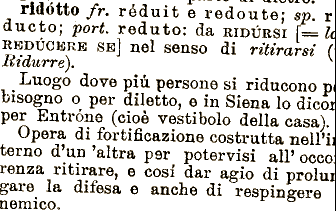 ridótto fr. réduit e redoute; sp. r
ducto; port. reduto: da RIDÚRSI [= l
REDÚCERE SE] nel senso di ritirarsi (
Ridurre).
Luogo dove piú persone si riducono p
bisogno o per diletto, e in Siena lo dico
per Entróne (cioè vestibolo della casa).
Opera di fortificazione costrutta nell'i
terno d'un 'altra per potervisi all' occo
renza ritirare, e cosí dar agio di prolu
gare la difesa e anche di respingere
nemico.